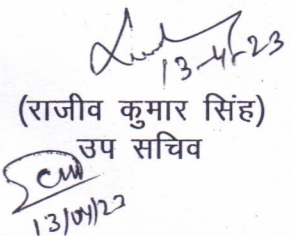 13-4-23
(राजीव कुमार सिंह)
उप सचिव
13/04/23